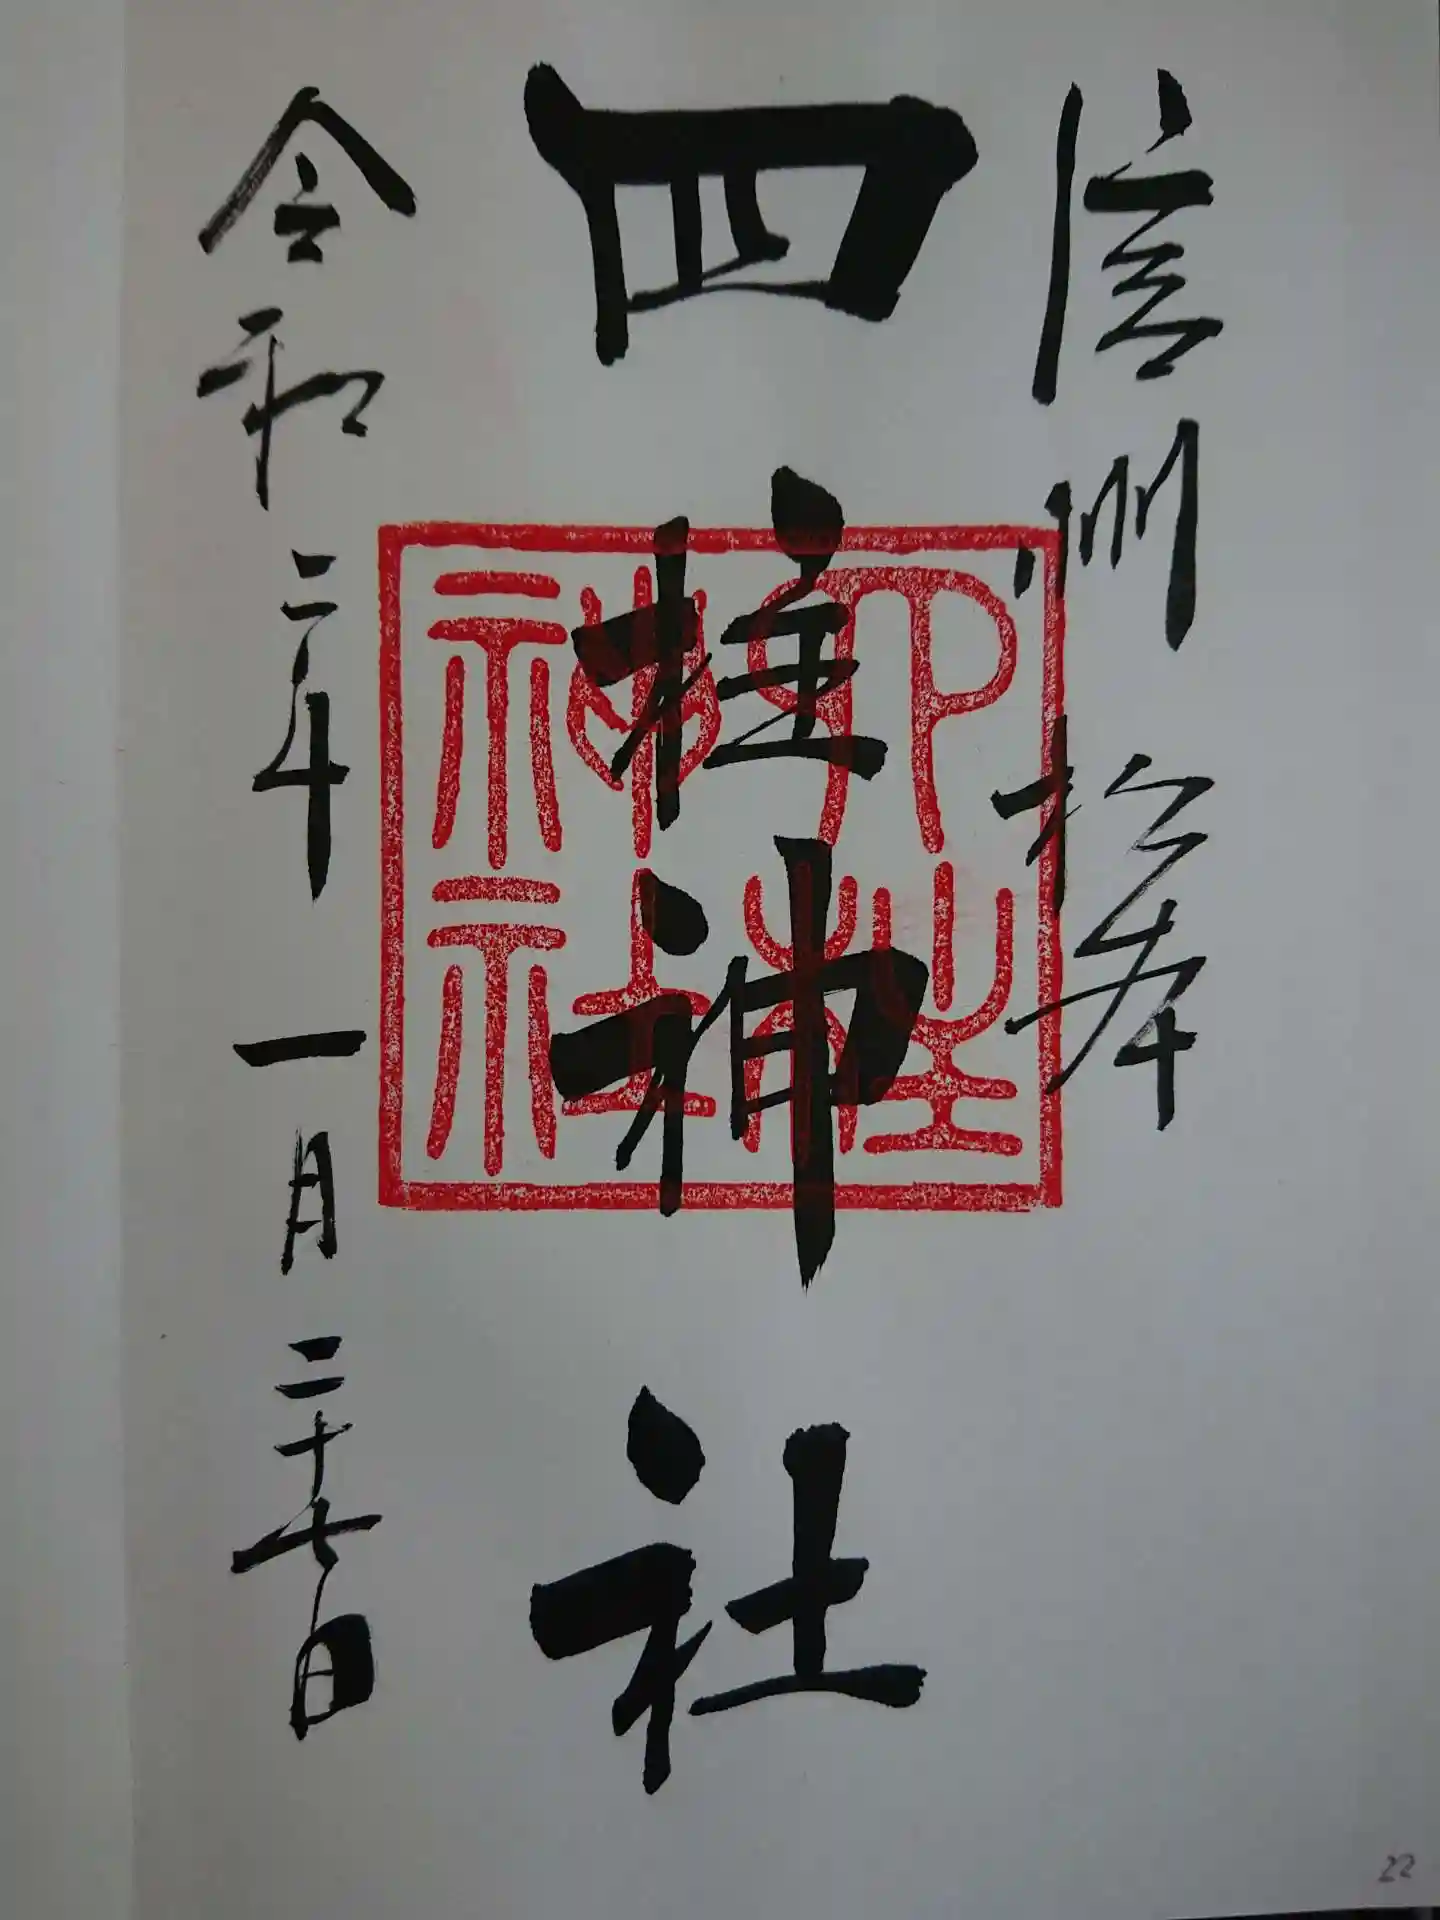 信州松本
四柱神社
四柱神社
令和二年一月二十七日
22